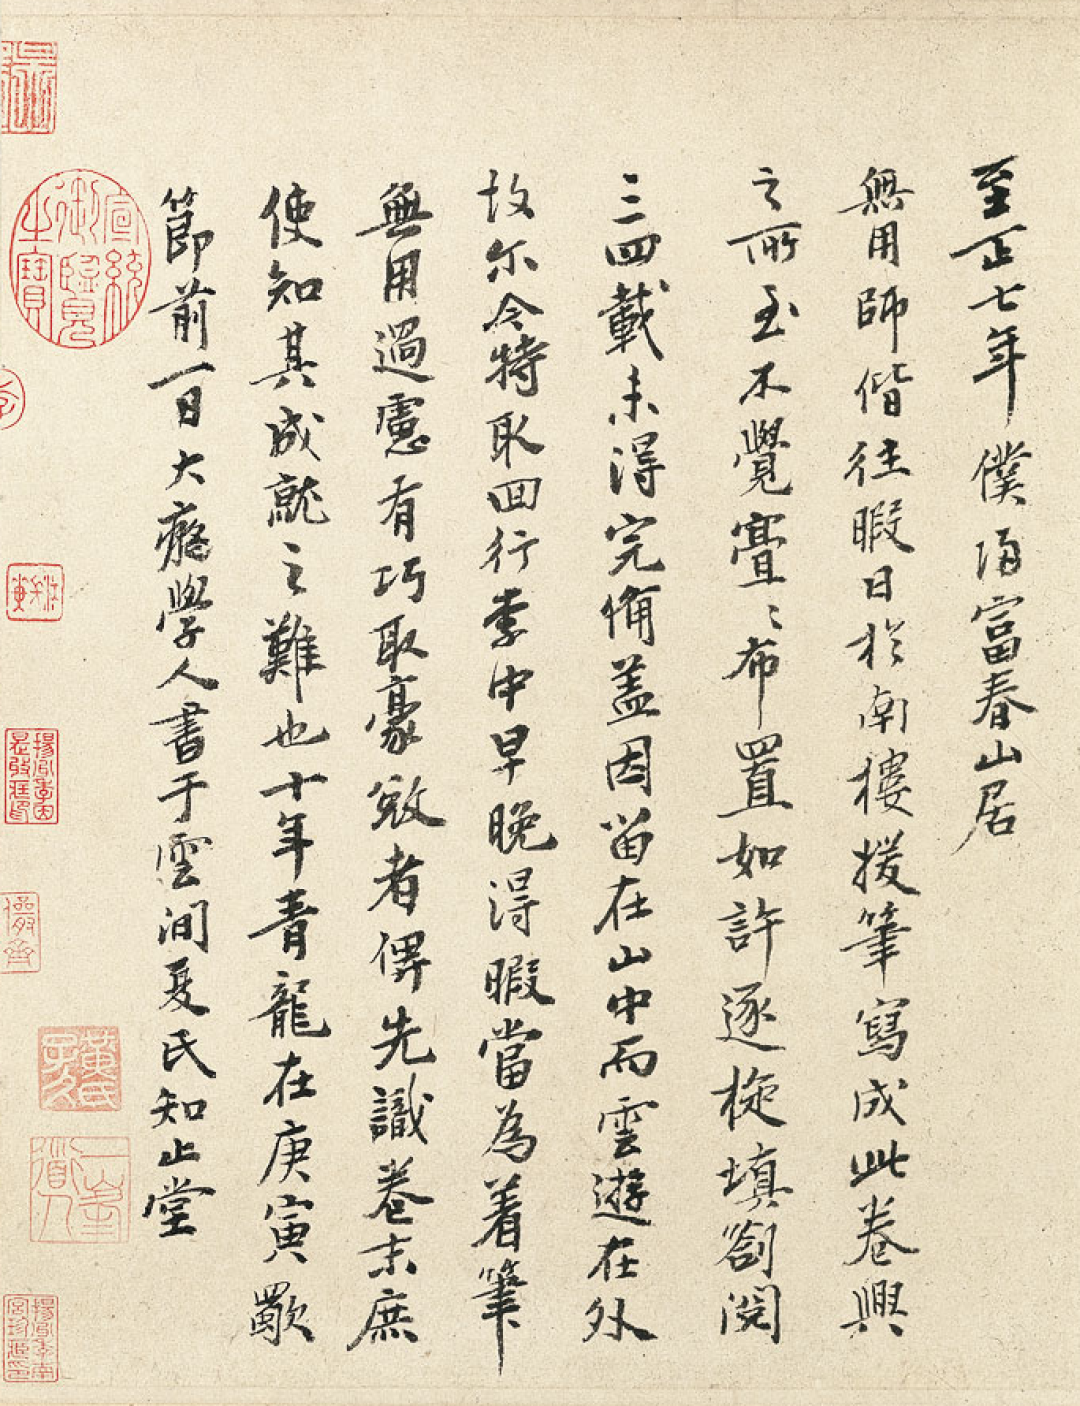 至正七年僕歸富春山居
無用師偕往暇日於南樓援筆寫成此卷興
之所至不覺亹〻布置如許逐旋填劄閱
三四載未得完備蓋因留在山中而雲遊在外
故尔今特取回行李中早晚得暇當為着筆
無用過慮有巧取豪敚者俾先識卷末庶
使知其成就之難也十年青龍在庚寅歜
節前一日大癡學人書于雲間夏氏知止堂
宣統御覽之寶
黃氏子久
一峯道人